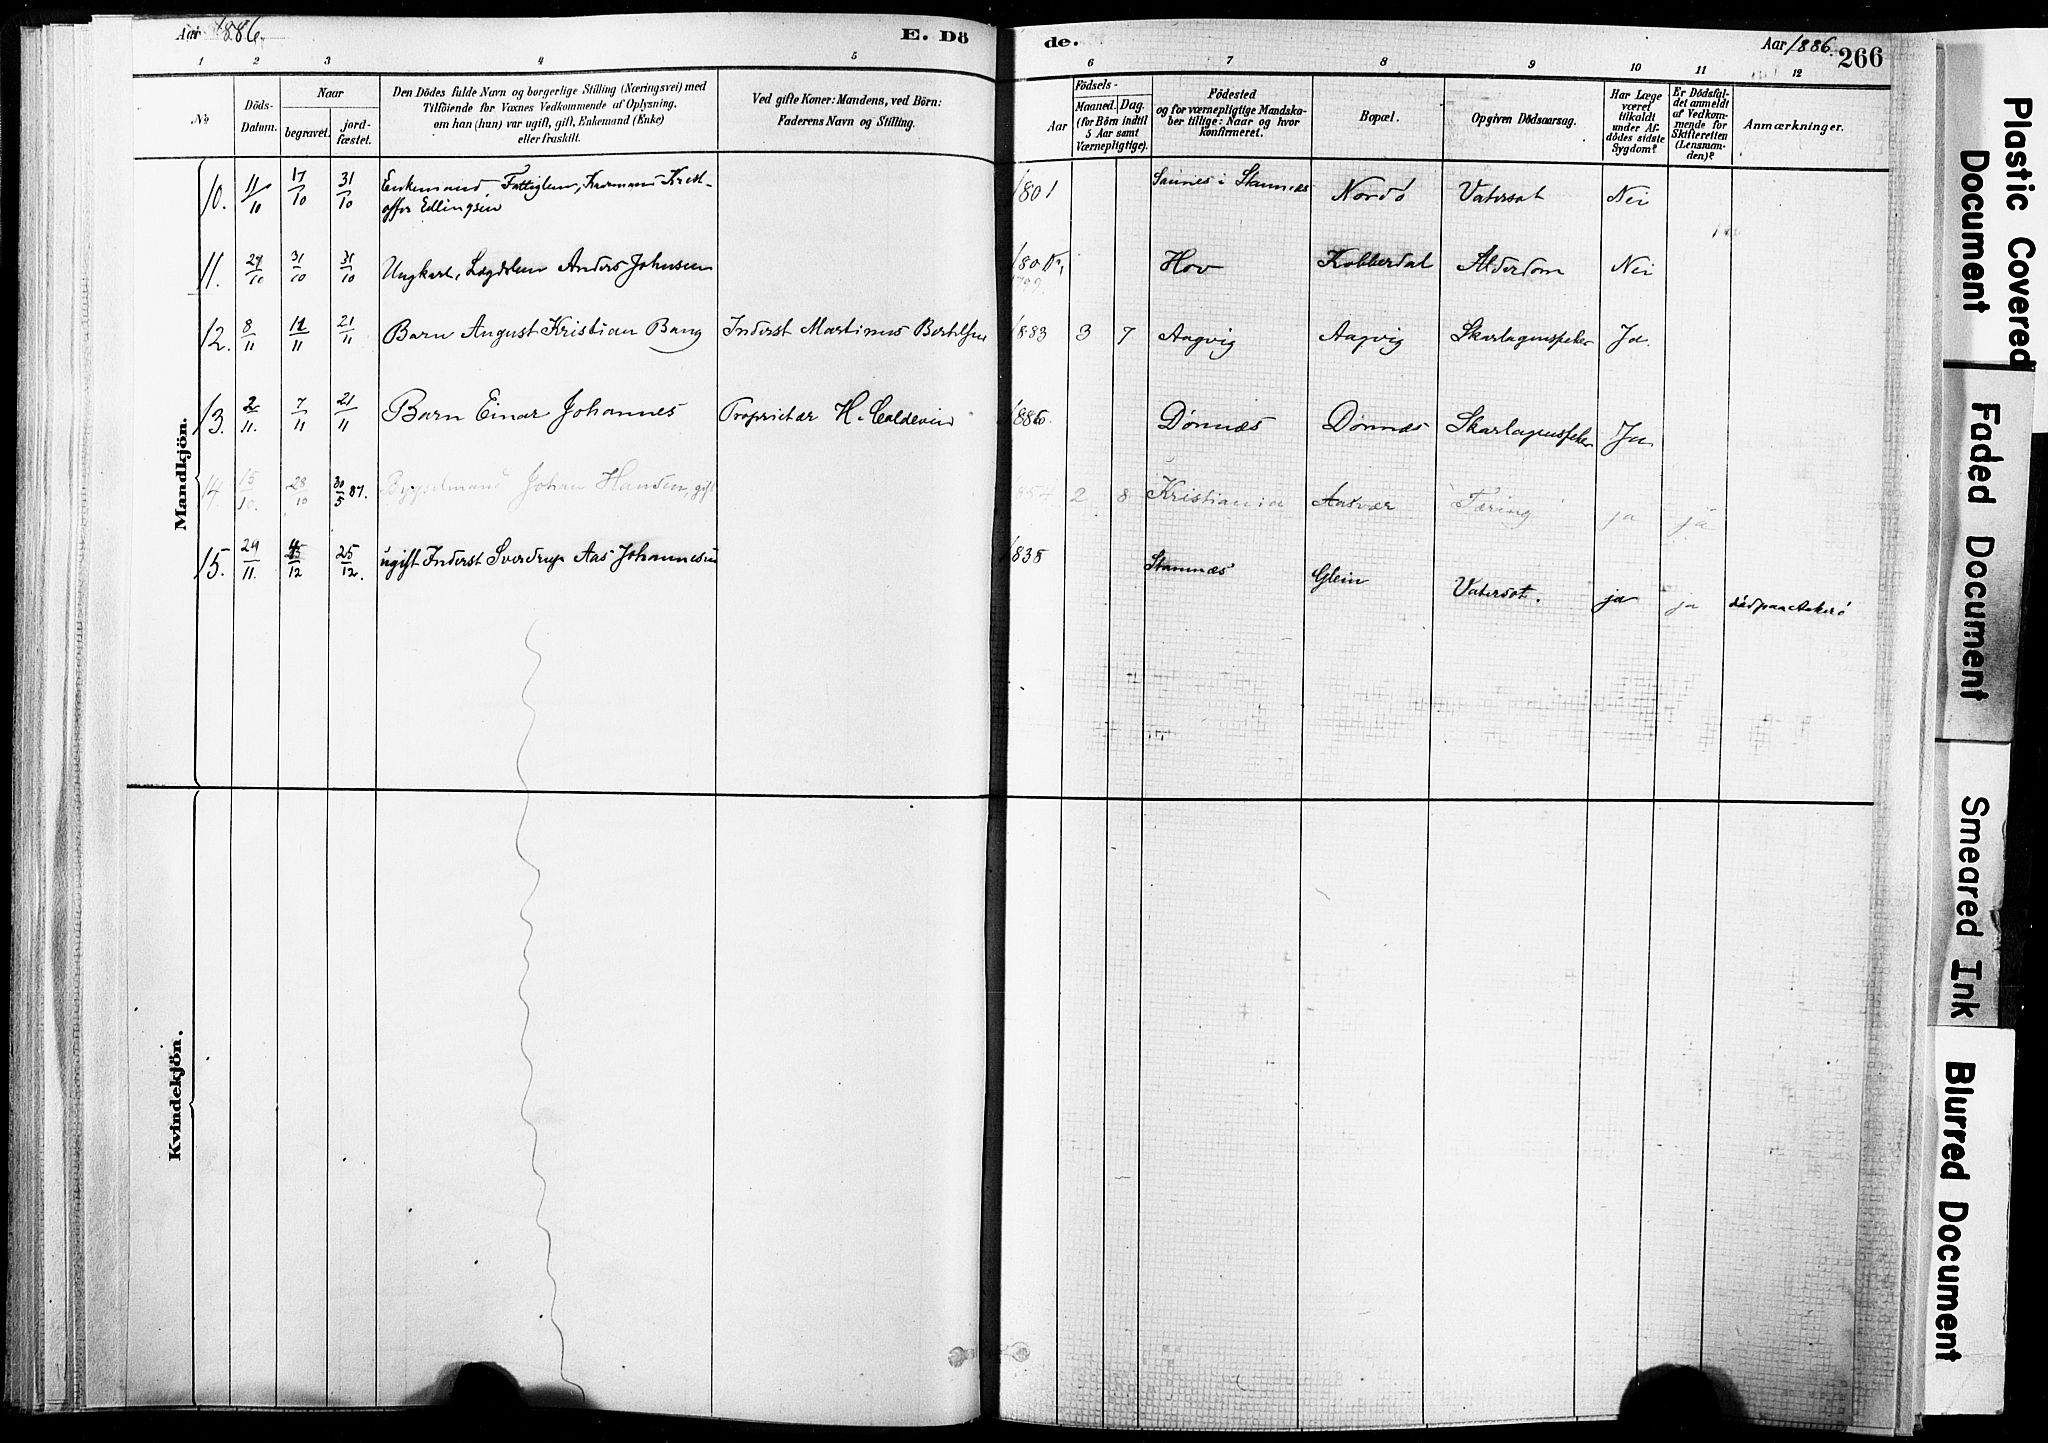 Aar 1886.
E. Dö
de.
Aar 1886.
266
1 2 3 4 5 6 7 8 9 10 11 12
No
Döds-
Datum.
Naar
begravet.
jord-
fæstet.
Den Dödes fulde Navn og borgerlige Stilling (Næringsvei) med
Tilföiende for Voxnes Vedkommende af Oplysning,
om han (hun) var ugift, gift, Enkemand (Enke)
eller fraskilt.
Ved gifte Koner: Mandens, ved Börn:
Faderens Navn og Stilling.
Födsels-
Aar
Maaned. Dag.
(for Börn indtil
5 Aar samt
Værnepligtige).
Födested
og for værnepligtige Mandska-
ber tillige: Naar og hvor
Konfirmeret.
Bopæl.
Opgiven Dödsaarsag.
Har Læge
været
tilkaldt
under Af-
dödes sidste
Sygdom?
Er Dödsfal-
det anmeldt
af Vedkom-
mende for
Skifteretten
(Lensman-
den)?
Anmærkninger.
Mandkjön.
10. 11/10 17/10 31/10 Enkemand, Fattiglem, Krist-
offer Edlingsen
1801 i Stamnes Nordö Vatersot Nei
11. 29/10 31/10 31/10 Ungkarl, Lægdslem Anders Johnsen 180 Hov Kobberdal Alderdom Nei
1799.
12. 8/11 11/11 21/11 Barn August Kristian Bang Inderst Martinus Bertelsen 1883 3 7 Aagvig Aagvig Skarlagensfeber Ja.
13. 2/11. 7/11 21/11 Barn Einar Johannes Proprietær H. Coldevin 1886. Dønnæs Dønnæs Skarlagensfeber Ja
14. 15/10. 28/10 30/5 87. Bygselmand Johan Hansen, gift 1854 2 8 Kristiania Aasvær Tæring ja ja
15. 29/11. /12 25/12. ugift Inderst Sverdrup Aas Johannesen 1835 Stamnæs Glein Vatersot. ja ja
Kvindekjön.
Plastic Covered
Document
Faded Document
Smeared Ink
Blurred Document